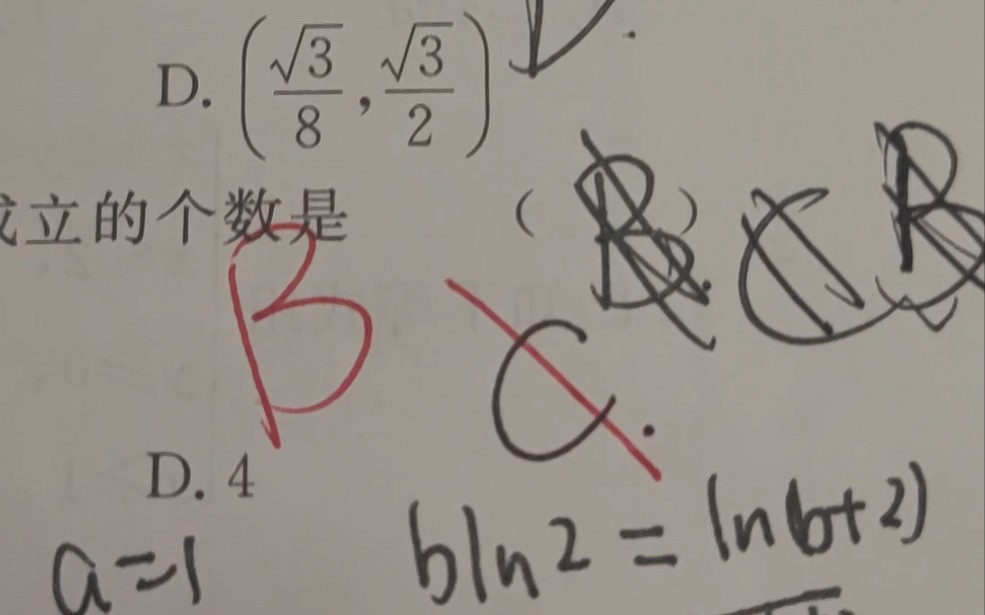 D. (√3/8, √3/2) D.
成立的个数是 ( B ) C B
B C.
D. 4
a=1 bln2 = ln(b+2)